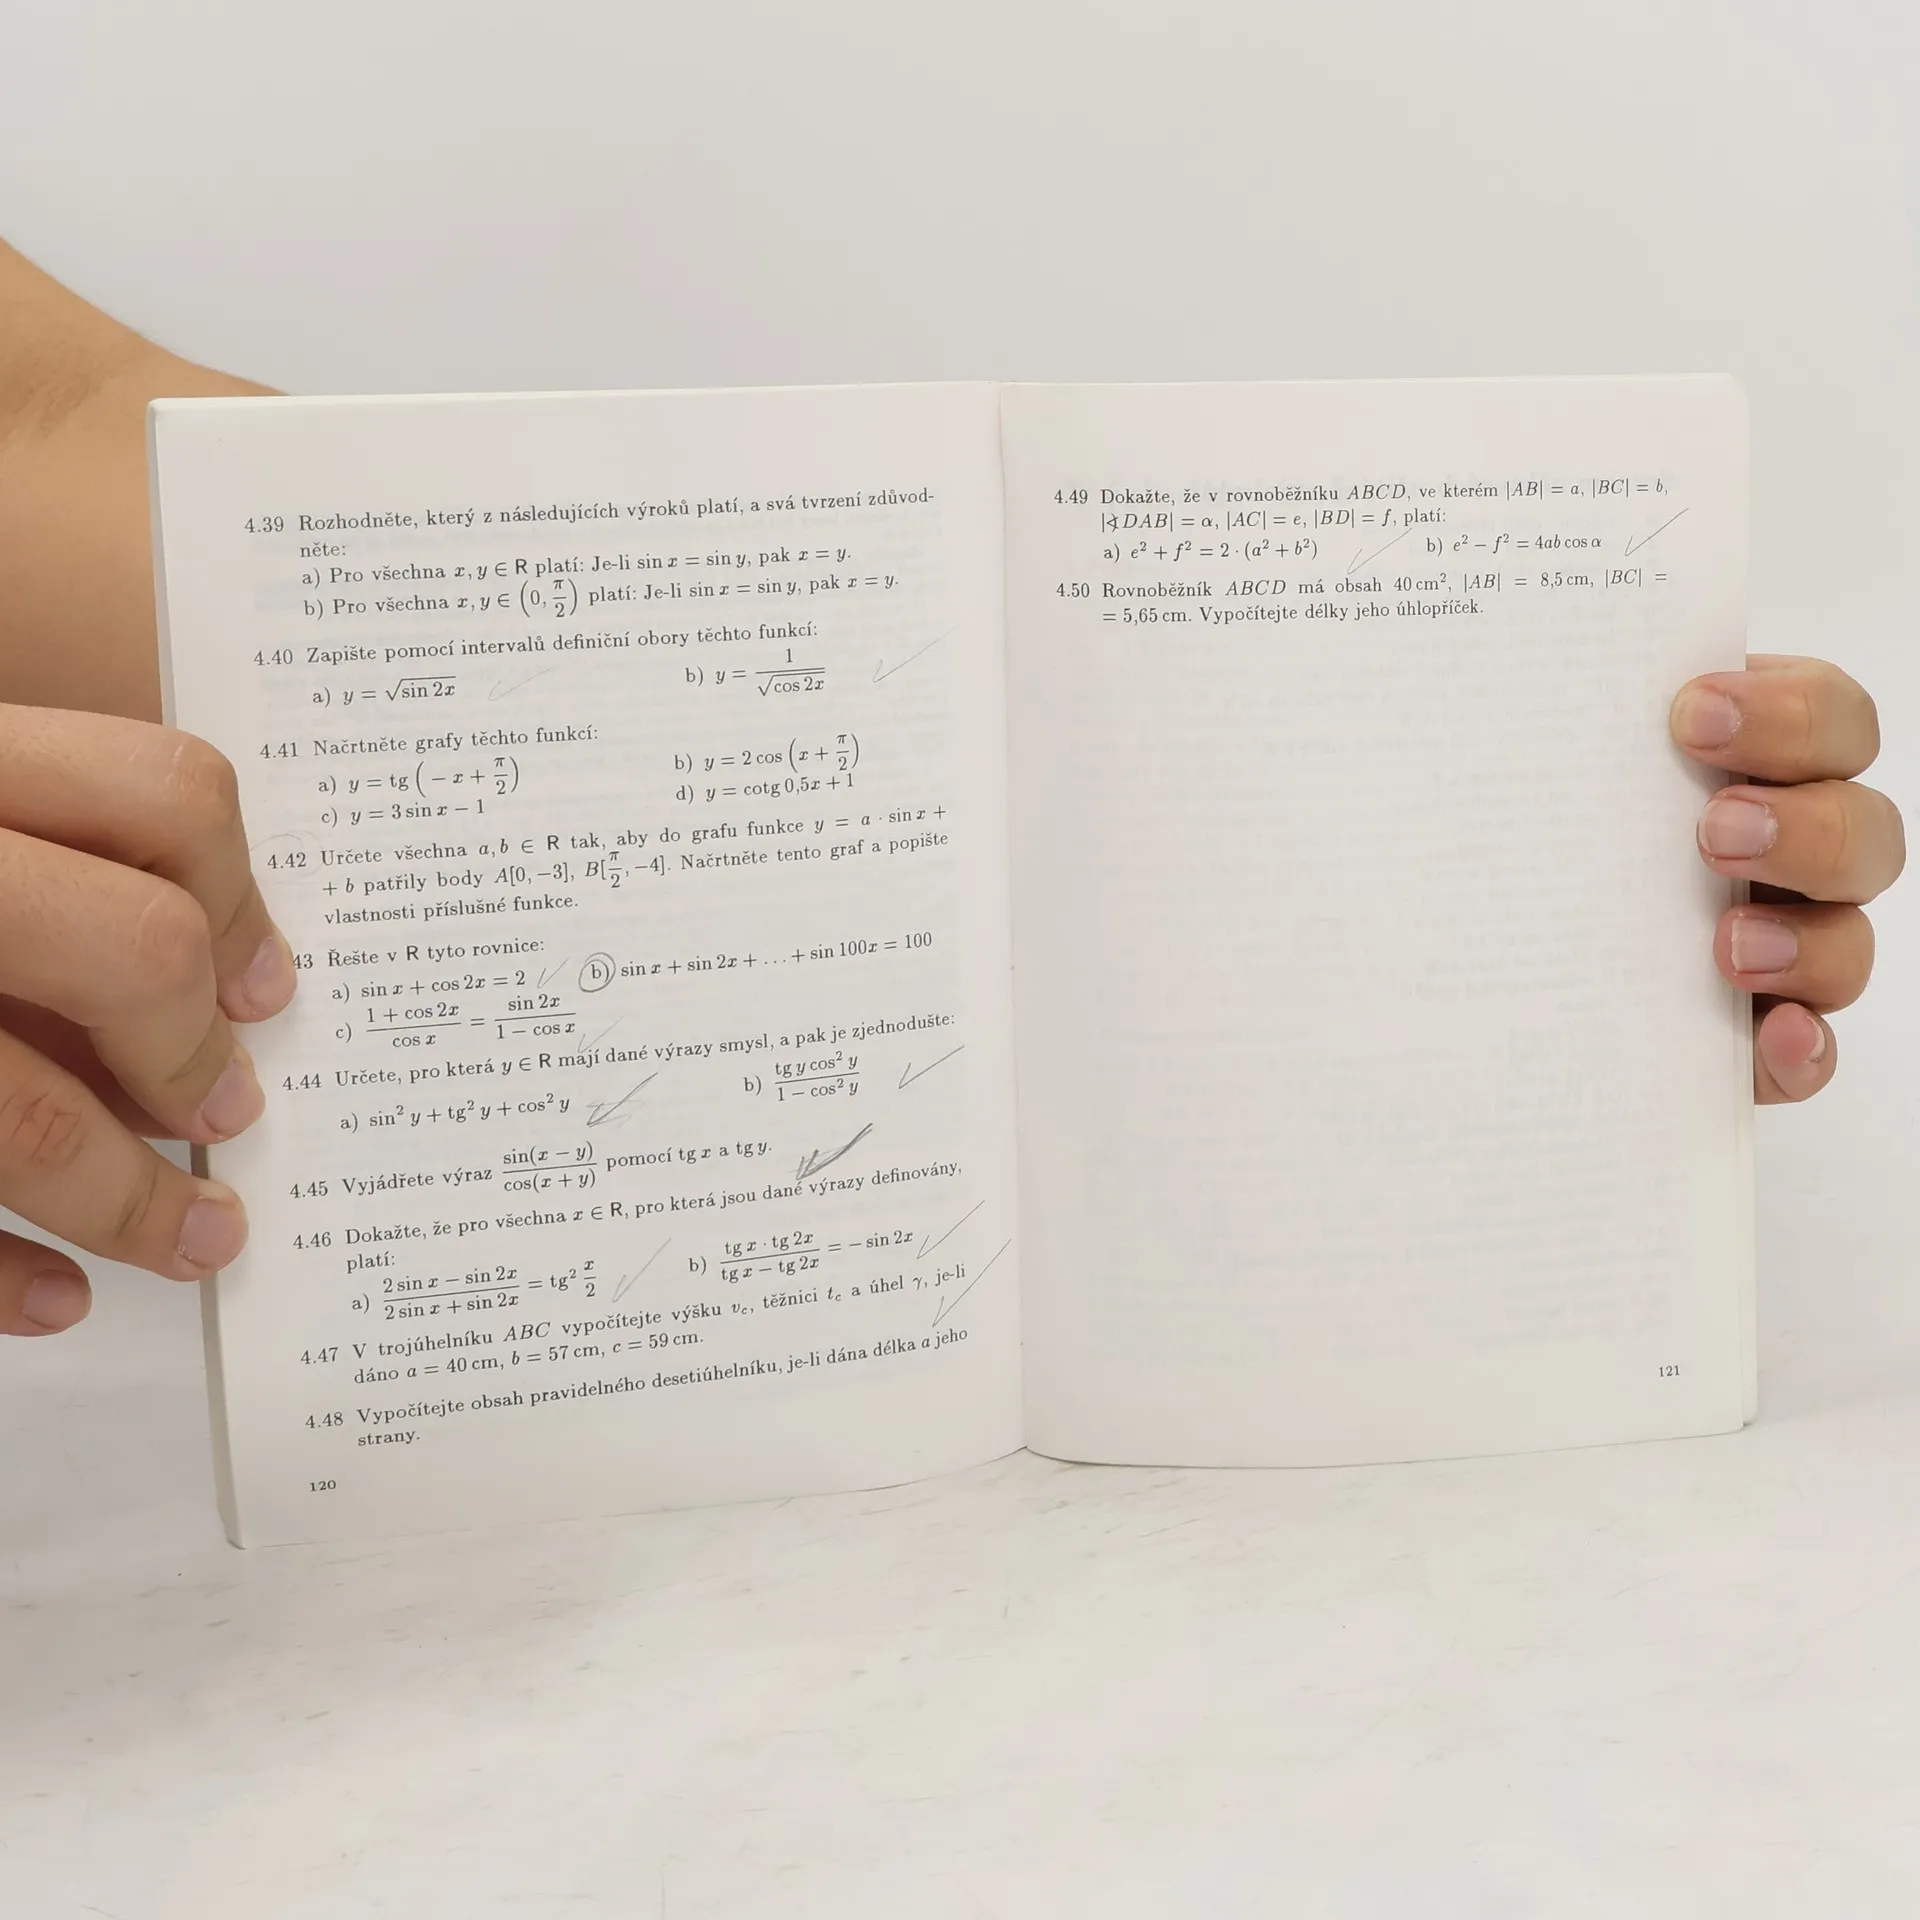 4.39 Rozhodněte, který z následujících výroků platí, a svá tvrzení zdůvod-
něte:
a) Pro všechna x, y ∈ R platí: Je-li sin x = sin y, pak x = y.
b) Pro všechna x, y ∈ (0, π/2) platí: Je-li sin x = sin y, pak x = y.
4.40 Zapište pomocí intervalů definiční obory těchto funkcí:
a) y = √(sin 2x) b) y = 1/√(cos 2x)
4.41 Načrtněte grafy těchto funkcí:
a) y = tg (− x + π/2) b) y = 2 cos (x + π/2)
c) y = 3 sin x − 1 d) y = cotg 0,5x + 1
4.42 Určete všechna a, b ∈ R tak, aby do grafu funkce y = a · sin x +
+ b patřily body A[0, −3], B[π/2, −4]. Načrtněte tento graf a popište
vlastnosti příslušné funkce.
43 Řešte v R tyto rovnice:
a) sin x + cos 2x = 2 b) sin x + sin 2x + ... + sin 100x = 100
c) (1 + cos 2x)/(cos x) = (sin 2x)/(1 − cos x)
4.44 Určete, pro která y ∈ R mají dané výrazy smysl, a pak je zjednodušte:
a) sin² y + tg² y + cos² y b) (tg y cos² y)/(1 − cos² y)
4.45 Vyjádřete výraz sin(x − y)/cos(x + y) pomocí tg x a tg y.
4.46 Dokažte, že pro všechna x ∈ R, pro která jsou dané výrazy definovány,
platí:
a) (2 sin x − sin 2x)/(2 sin x + sin 2x) = tg² x/2 b) (tg x · tg 2x)/(tg x − tg 2x) = − sin 2x
4.47 V trojúhelníku ABC vypočítejte výšku v_c, těžnici t_c a úhel γ, je-li
dáno a = 40 cm, b = 57 cm, c = 59 cm.
4.48 Vypočítejte obsah pravidelného desetiúhelníku, je-li dána délka a jeho
strany.
120
4.49 Dokažte, že v rovnoběžníku ABCD, ve kterém |AB| = a, |BC| = b,
|∢DAB| = α, |AC| = e, |BD| = f, platí:
a) e² + f² = 2 · (a² + b²) b) e² − f² = 4ab cos α
4.50 Rovnoběžník ABCD má obsah 40 cm², |AB| = 8,5 cm, |BC| =
= 5,65 cm. Vypočítejte délky jeho úhlopříček.
121